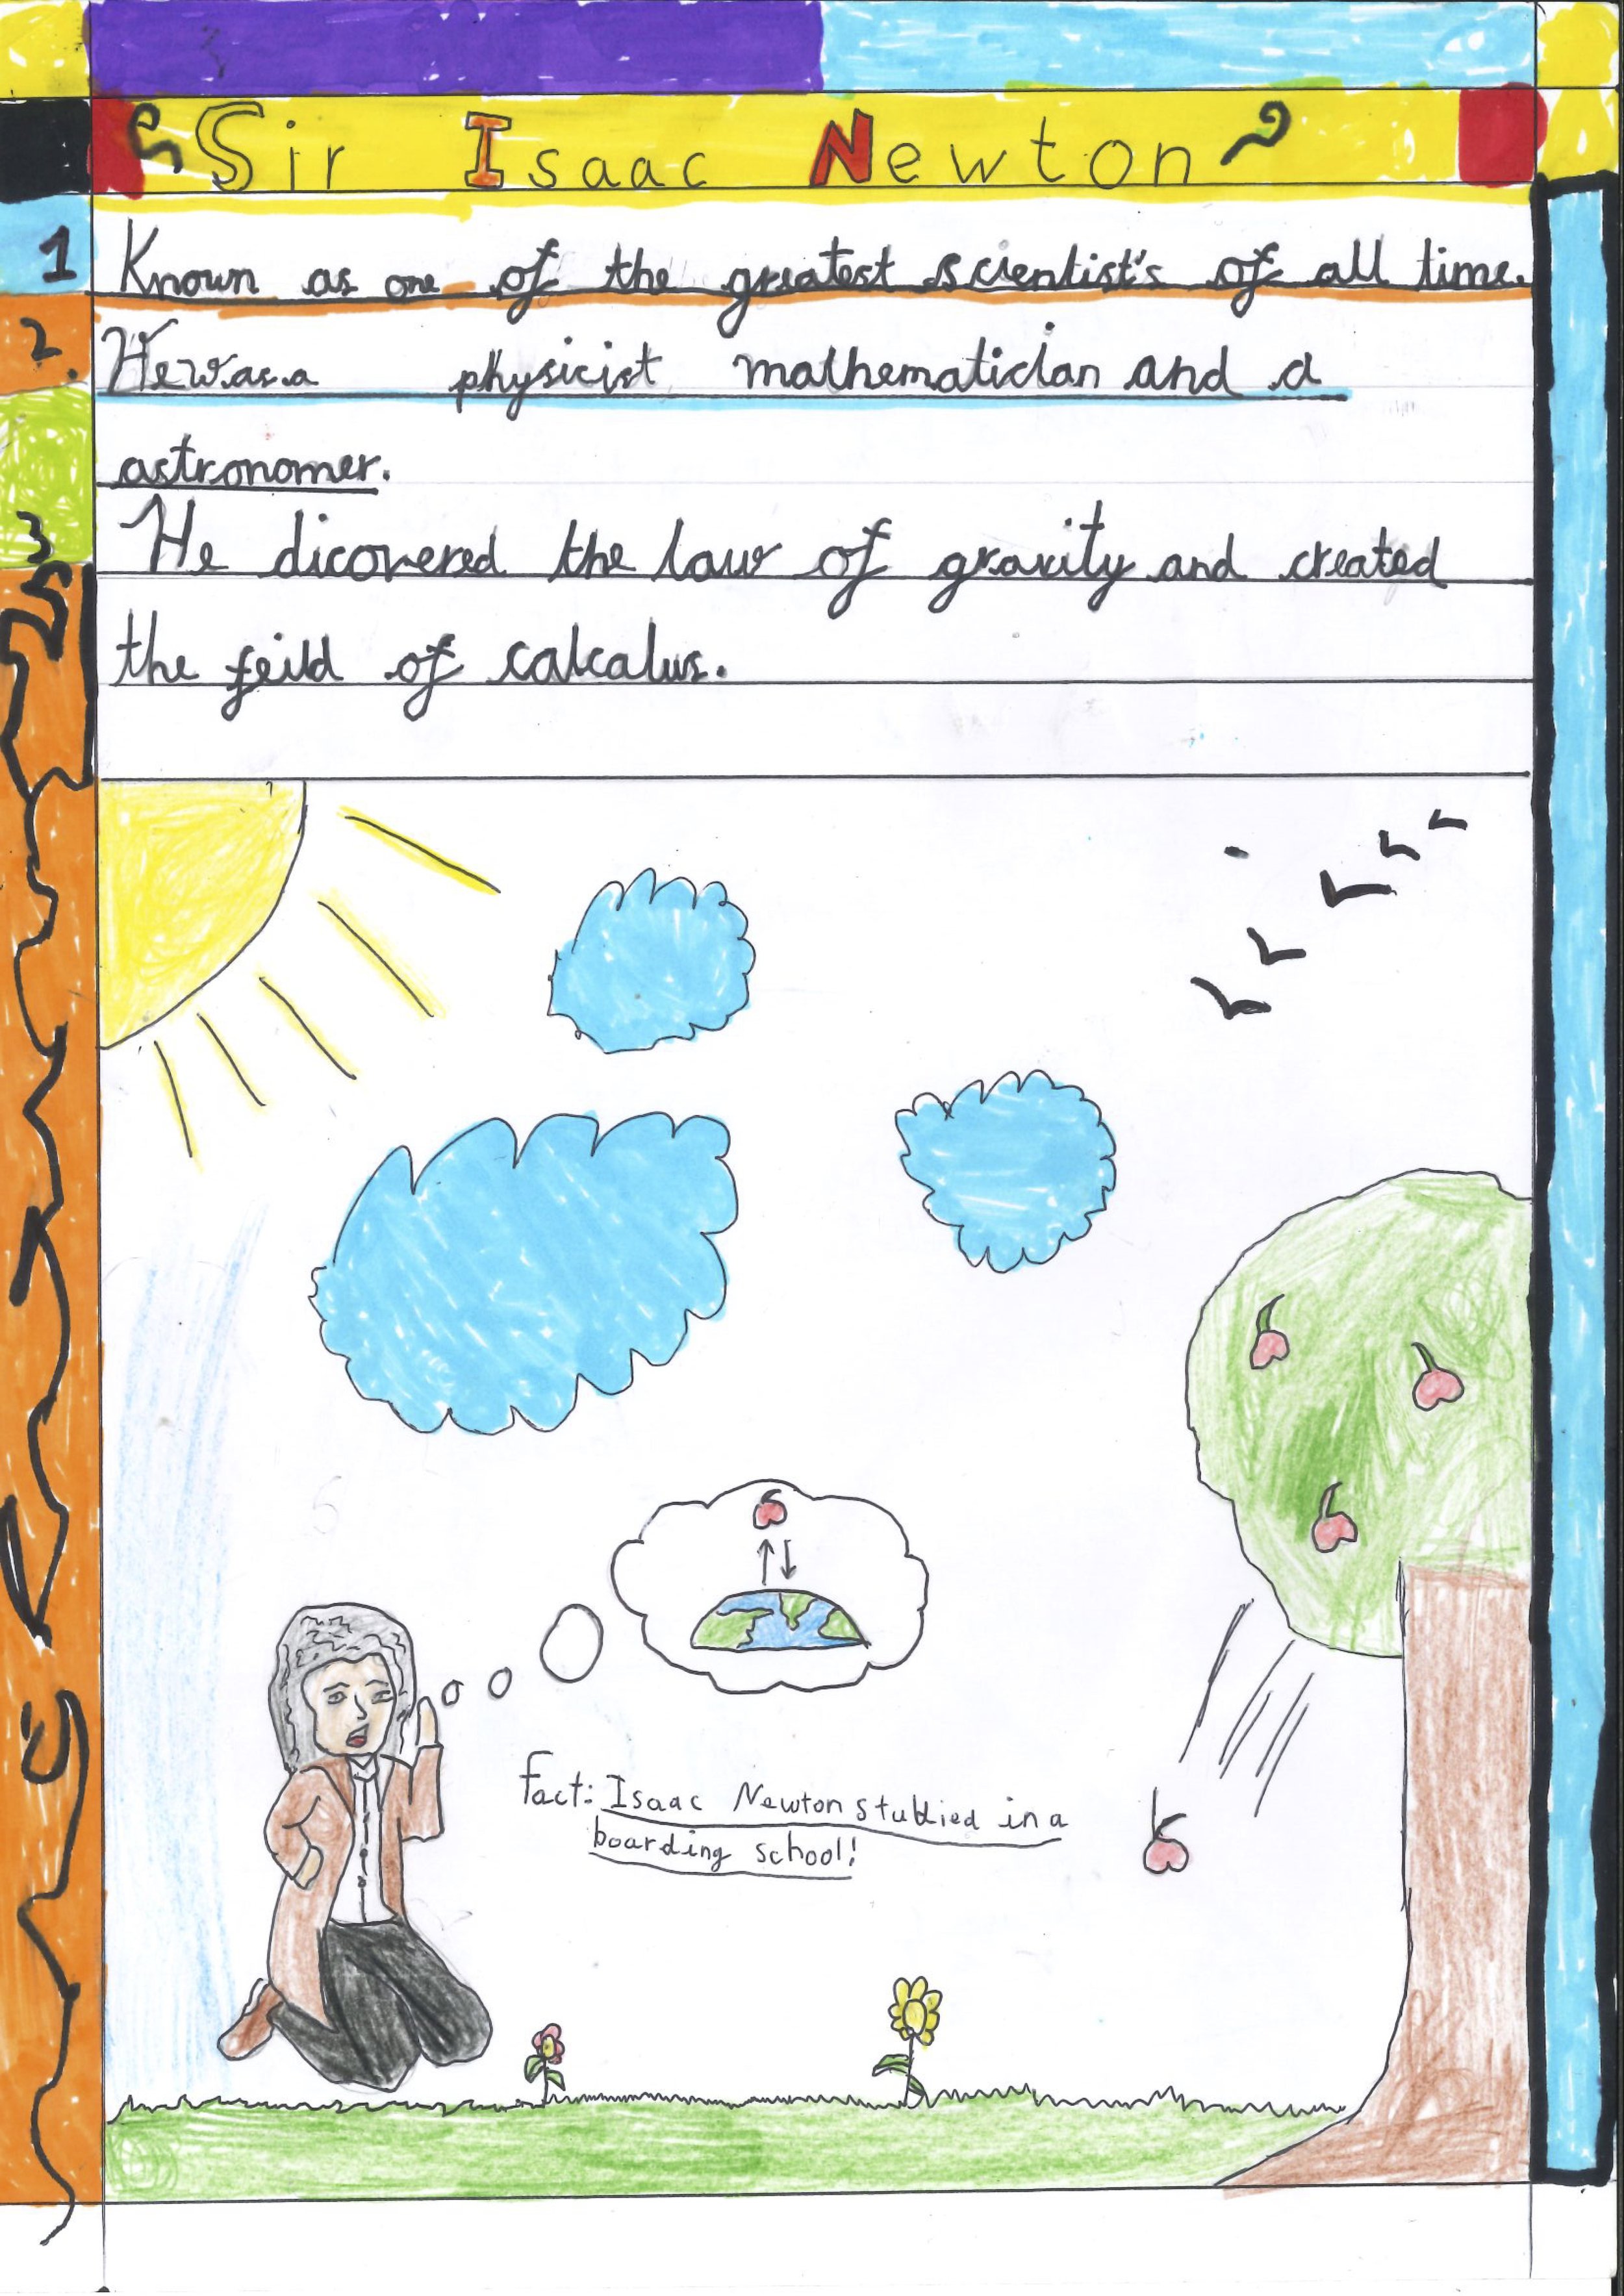 Sir Isaac Newton
1 Known as one of the greatest scientist's of all time.
2. He was a physicist mathematician and a
astronomer.
3 He dicovered the law of gravity and created
the feild of calcalus.
Fact: Isaac Newton studied in a
boarding school!